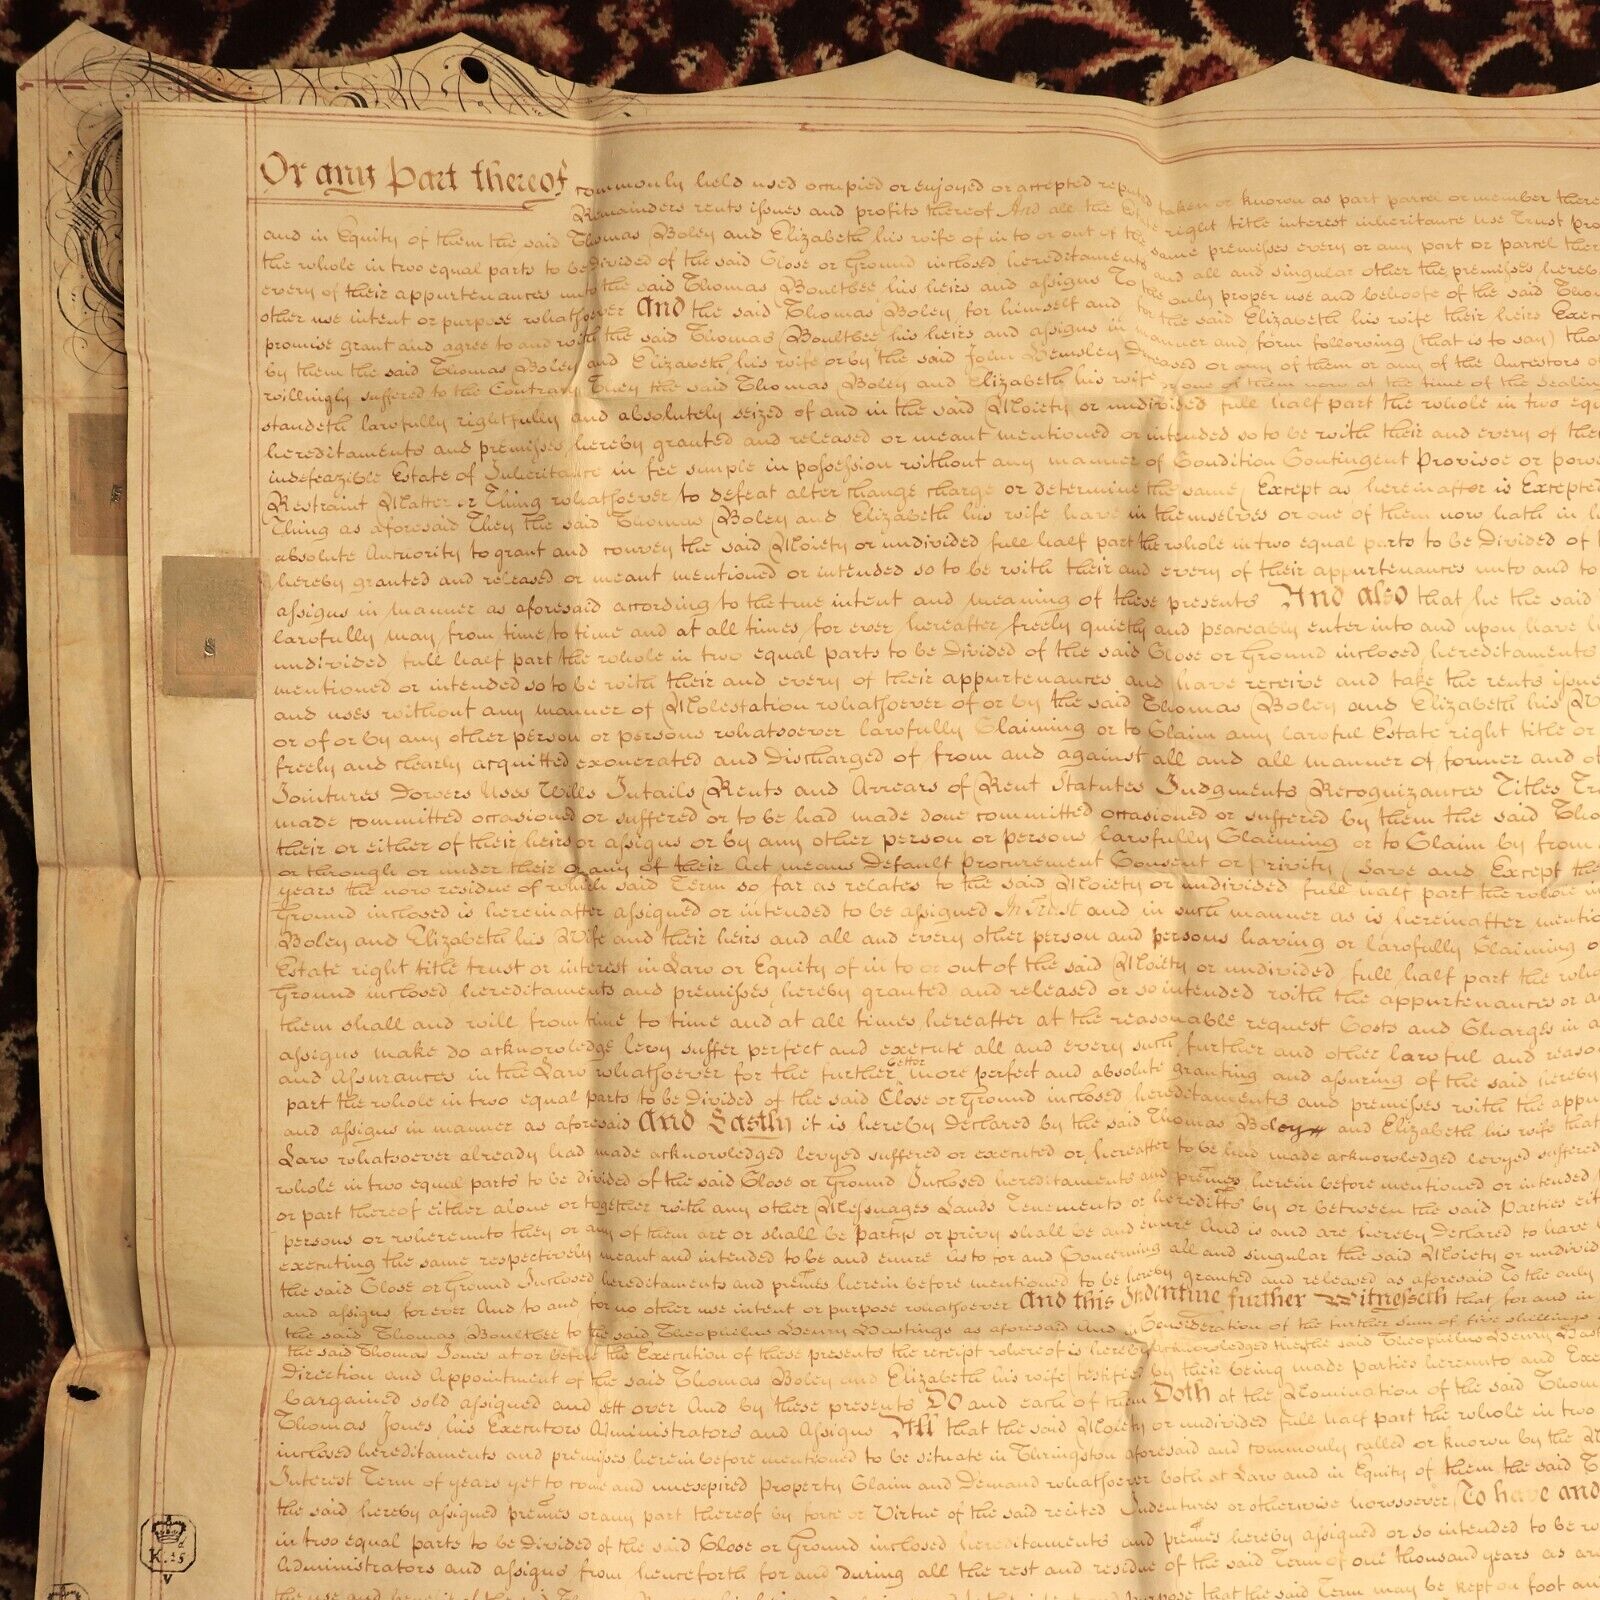 Or any part thereof commonly held used occupied or enjoyed or accepted reputed taken or known as part parcel or member there
Remainders rents issues and profits thereof And all the right title interest inheritance use Trust pro
and in Equity of them the said Thomas Boley and Elizabeth his wife of in to or out of the same premisses every or any part or parcel ther
the whole in two equal parts to be Divided of the said Close or Ground inclosed hereditaments and all and singular other the premisses hereb
every of their appurtenances unto the said Thomas Boultbee his heirs and assigns To the only proper use and behoofe of the said Thom
other use intent or purpose whatsoever And the said Thomas Boley for himself and for the said Elizabeth his wife their heirs Exec
promise grant and agree to and with the said Thomas Boultbee his heirs and assigns in manner and form following (that is to say) tha
by them the said Thomas Boley and Elizabeth his wife or by the said John Hemsley Deceased or any of them or any of the Ancestors o
willingly suffered to the Contrary They the said Thomas Boley and Elizabeth his wife or one of them now at the time of the Sealin
standeth lawfully rightfully and absolutely seized of and in the said Moiety or undivided full half part the whole in two equ
hereditaments and premisses hereby granted and released or meant mentioned or intended so to be with their and every of the
indefeazible Estate of Inheritance in fee simple in possession without any manner of Condition Contingent Provisoe or powe
Restraint Matter or Thing whatsoever to defeat alter change charge or determine the same (Except as hereinafter is Excepted
Thing as aforesaid They the said Thomas Boley and Elizabeth his wife have in themselves or one of them now hath in h
absolute Authority to grant and convey the said Moiety or undivided full half part the whole in two equal parts to be Divided of t
hereby granted and released or meant mentioned or intended so to be with their and every of their appurtenances unto and to
assigns in manner as aforesaid according to the true intent and meaning of these presents And also that he the said
lawfully may from time to time and at all times for ever hereafter freely quietly and peaceably enter into and upon have h
undivided full half part the whole in two equal parts to be Divided of the said Close or Ground inclosed hereditaments
mentioned or intended so to be with their and every of their appurtenances and have receive and take the rents issue
and uses without any manner of Molestation whatsoever of or by the said Thomas Boley and Elizabeth his W
or of or by any other person or persons whatsoever lawfully Claiming or to Claim any lawful Estate right title or
freely and clearly acquitted exonerated and Discharged of from and against all and all manner of former and ot
Jointures Dowers Uses Wills Intails Rents and Arrears of Rent Statutes Judgments Recognizances Titles Tr
made committed occasioned or suffered or to be had made done committed occasioned or suffered by them the said Tho
their or either of their heirs or assigns or by any other person or persons lawfully Claiming or to Claim by from
or through or under their or any of their Act means Default procurement Consent or privity (Save and Except the
years the now residue of which said Term so far as relates to the said Moiety or undivided full half part the whole in
Ground inclosed is hereinafter assigned or intended to be assigned In Trust and in such manner as is hereinafter mentio
Boley and Elizabeth his Wife and their heirs and all and every other person and persons having or lawfully Claiming o
Estate right title trust or interest in Law or Equity of in to or out of the said Moiety or undivided full half part the who
Ground inclosed hereditaments and premisses hereby granted and released or so intended with the appurtenances or a
them shall and will from time to time and at all times hereafter at the reasonable request Costs and Charges in a
assigns make do acknowledge levy suffer perfect and execute all and every such further and other lawful and reaso
and Assurances in the Law whatsoever for the further better more perfect and absolute granting and assuring of the said hereby
part the whole in two equal parts to be Divided of the said Close or Ground inclosed hereditaments and premisses with the appu
and assigns in manner as aforesaid And Lastly it is hereby Declared by the said Thomas Boley and Elizabeth his wife that
Law whatsoever already had made acknowledged levyed suffered or executed or hereafter to be had made acknowledged levyed suffered
whole in two equal parts to be divided of the said Close or Ground Inclosed hereditaments and premes herein before mentioned or intended
or part thereof either alone or together with any other Messuages Lands Tenements or heredits by or between the said Parties eit
persons or whereunto they or any of them are or shall be Partys or privy shall be and enure And is and are hereby Declared to have
executing the same respectively meant and intended to be and enure As to for and Concerning all and singular the said Moiety or undivid
the said Close or Ground Inclosed hereditaments and premes herein before mentioned to be hereby granted and released as aforesaid To the only
and assigns for ever And to and for no other use intent or purpose whatsoever And this Indenture further Witnesseth that for and in
the said Thomas Boultbee to the said Theophilus Henry Hastings as aforesaid And in Consideration of the further sum of five shillings
the said Thomas Jones at or before the Execution of these presents the receipt whereof is hereby acknowledged the said Theophilus Henry Hast
Direction and Appointment of the said Thomas Boley and Elizabeth his wife (testified by their being made parties hereunto and Exe
bargained sold assigned and sett over And by these presents Do and each of them Doth at the Nomination of the said Thom
Thomas Jones his Executors Administrators and Assigns All that the said Moiety or undivided full half part the whole in two
inclosed hereditaments and premisses herein before mentioned to be situate in Thringston aforesaid and commonly called or known by the N
Interest Term of years yet to come and unexpired Property Claim and Demand whatsoever both at Law and in Equity of them the said T
the said hereby assigned premes or any part thereof by force or Virtue of the said recited Indentures or otherwise howsoever To have and
in two equal parts to be Divided of the said Close or Ground inclosed hereditaments and premes hereby assigned or so intended to be w
Administrators and assigns from henceforth for and during all the rest and residue of the said Term of one thousand years as are
purpose that the said Term may be kept on foot an